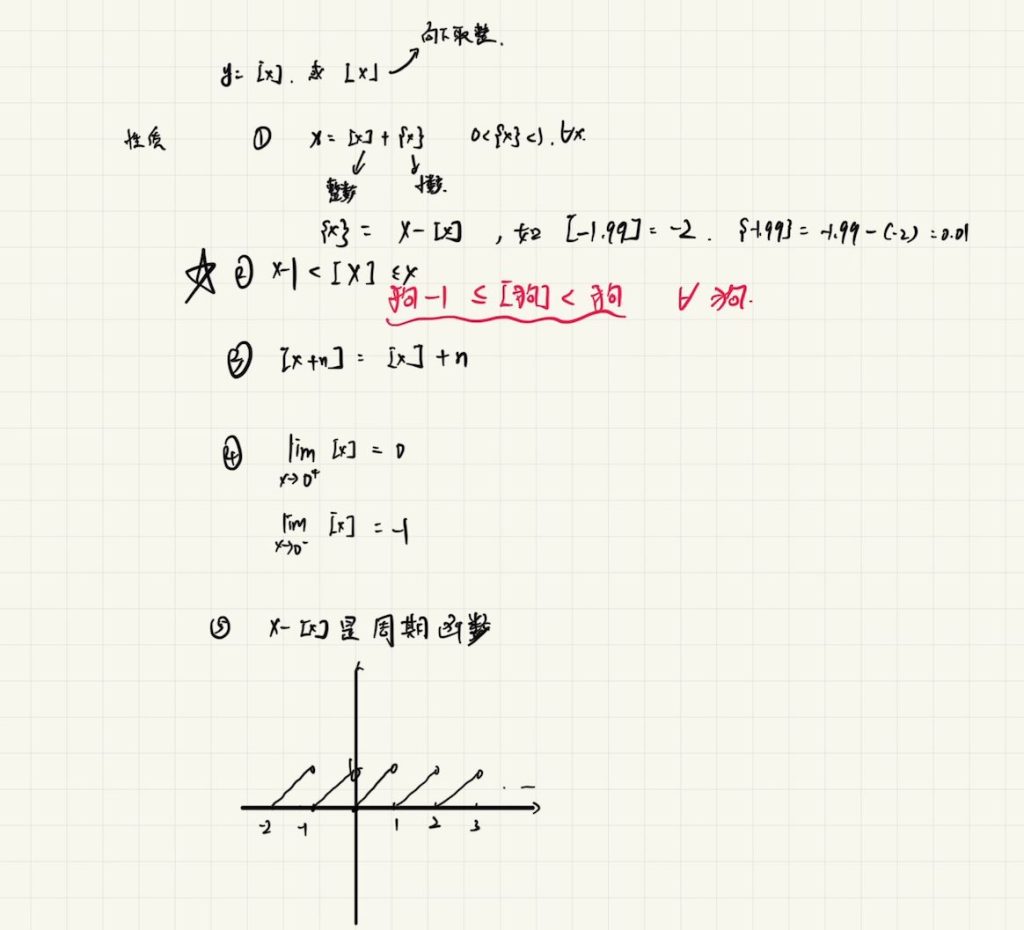 向下取整.
y=[x]. 或 [x]
性质 ① x=[x]+{x} 0<{x}<1.∀x.
整数
{x} = x-[x] ,如 [-1.99]=-2. {-1.99}=-1.99-(-2)=0.01
② x-1<[x]≤x
狗-1≤[狗]<狗 ∀狗.
③ [x+n]=[x]+n
④ lim [x] = 0
x→0⁺
lim [x] = -1
x→0⁻
⑤ x-[x]是周期函数
-2 -1 1 2 3